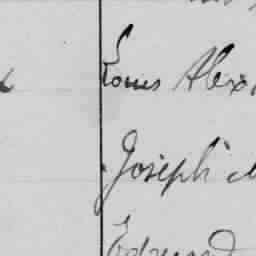 Louis Alex
Joseph
Edmund